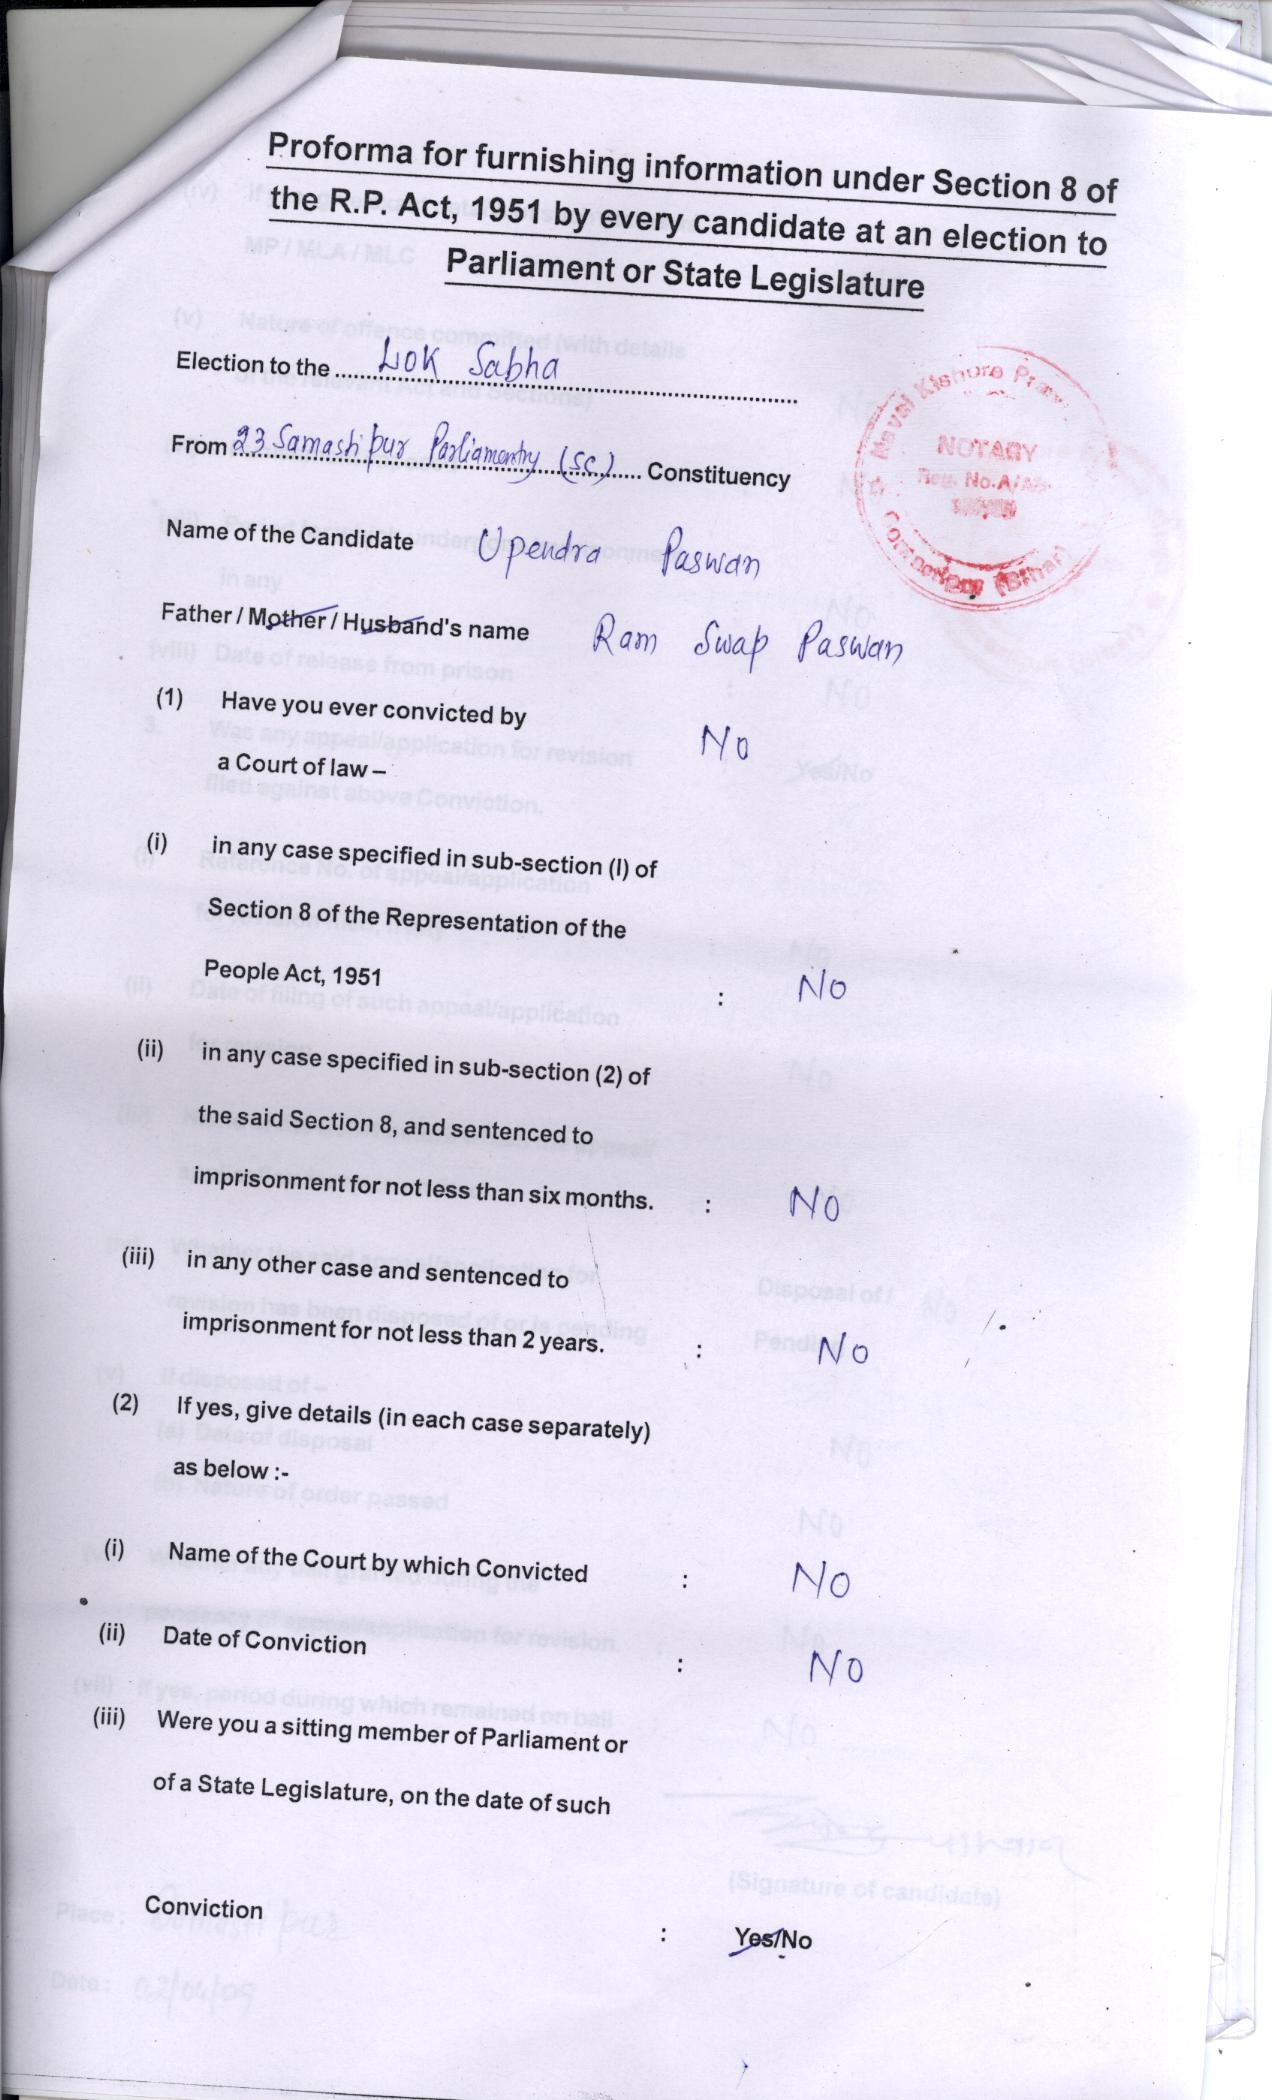 Proforma for furnishing information under Section 8 of
the R.P. Act, 1951 by every candidate at an election to
Parliament or State Legislature
Election to the ........ Lok Sabha ........
From 23 Samastipur Parliamentry (SC) ...... Constituency
Name of the Candidate Upendra Paswan
Father / Mother / Husband's name Ram Swap Paswan
Naval Kishore
NOTARY
Reg. No.
(Bihar)
(1) Have you ever convicted by
a Court of law – No
(i) in any case specified in sub-section (I) of
Section 8 of the Representation of the
People Act, 1951 : No
(ii) in any case specified in sub-section (2) of
the said Section 8, and sentenced to
imprisonment for not less than six months. : No
(iii) in any other case and sentenced to
imprisonment for not less than 2 years. : No
(2) If yes, give details (in each case separately)
as below :-
(i) Name of the Court by which Convicted : No
(ii) Date of Conviction : No
(iii) Were you a sitting member of Parliament or
of a State Legislature, on the date of such
Conviction : Yes/No